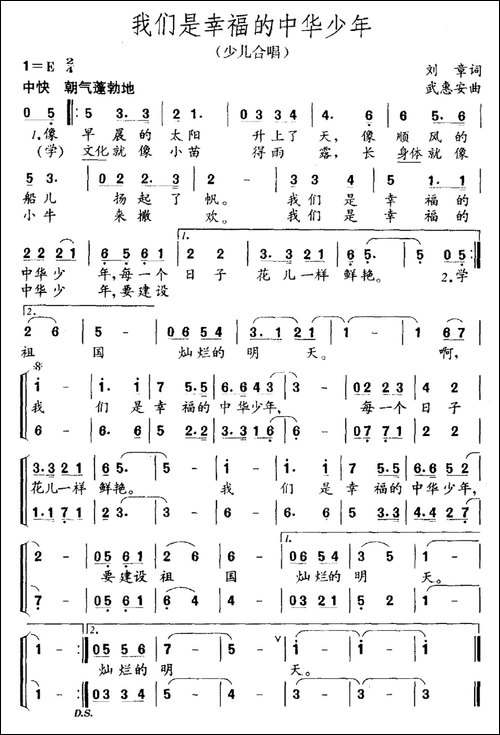 我们是幸福的中华少年
（少儿合唱）
1=E 2/4
刘 章词
中快 朝气蓬勃地
武惠安曲
0 5 5 3. 3 2 1. 0 3 3 4 4. 6 6. 5 5
1.像 早晨的 太阳 升上了 天，像 顺风的
(学) 文化就像 小苗 得雨 露，长 身体就像
5 3. 0 2 2. 3 2 - 3 3 4 5 1. 1
船儿 扬起了 帆。 我们是 幸福的
小牛 来撒 欢。 我们是 幸福的
2 2 2 1 6 5 6 1 2 2 3. 3 2 1 6 5. 5 0 5
中华少 年，每一个 日子 花儿一样 鲜艳。 2.学
中华少 年，要建设
2 6 5 - 0 6 5 4 3. 1 2 1 1 - 1 6 7
祖 国 灿烂的 明 天。 啊，
i - i. i 7 5. 5 6. 6 4 3 3 - 0 2 2 3 4 2
我 们是 幸福的 中华少年， 每一个 日子
6 - 6. 6 5 2. 2 3. 3 1 6 6 - 0 7 7 1 2 2
3. 3 2 1 6 5. 5 - i i. i 7 5. 5 6. 6 5 2
花儿一样 鲜艳。 我 们是 幸福的 中华少年，
1. 1 7 1 2 3. 3 - 6 6. 6 5 3. 3 4. 4 2 7
2 - 0 5 6 1 2 6 6 - 0 6 5 4 3 5 1 -
要建设 祖 国 灿烂的 明 天。
7 - 0 5 6 1 2 2 4 - 0 3 2 1 5 5 1 -
1 - 0 5 5 6 7 - 5 - i - i - i -
灿烂的 明 天。
1 - 0 3 3 4 5 - 4 - 3 - 3 - 3 -
D.S.